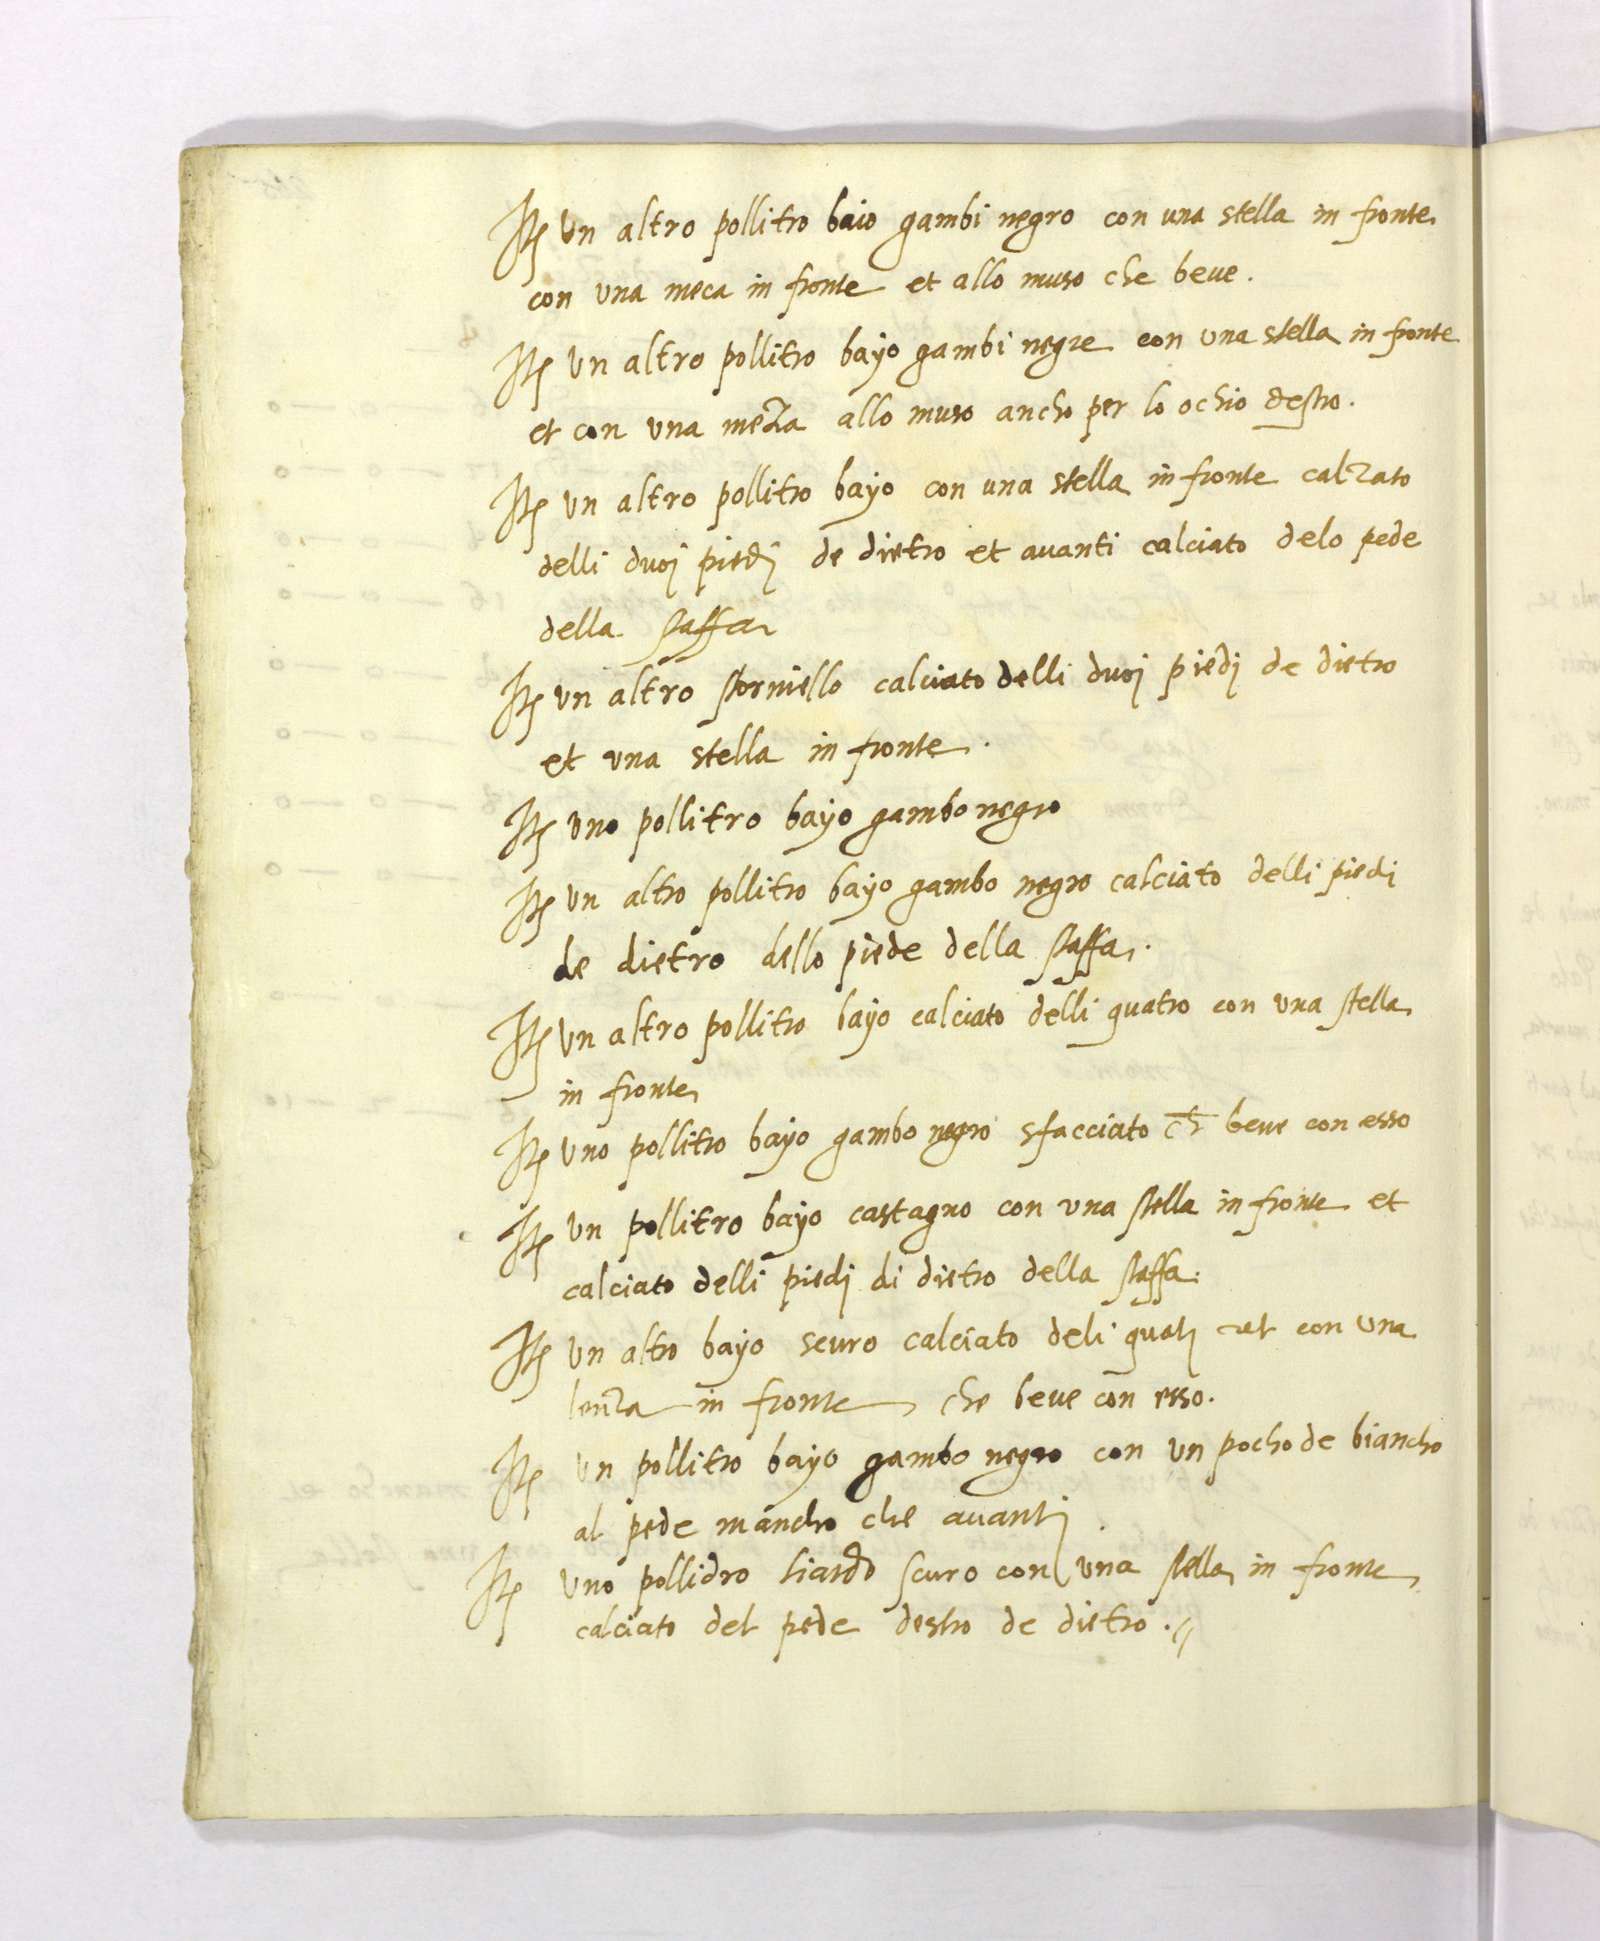 Itͫ un altro pollitro baio gambi negro con una stella in fronte
con una meca in fronte et allo muso che beue.
Itͫ un altro pollitro bayo gambi negre con una stella in fronte
et con una meza allo muso ancho per lo ochio destro.
Itͫ un altro pollitro bayo con una stella in fronte calzato
delli duoj piedj de dietro et auanti calciato delo pede
della staffa
Itͫ un altro storniello calciato delli duoj piedj de dietro
et una stella in fronte.
Itͫ uno pollitro bayo gambo negro
Itͫ un altro pollitro bayo gambo negro calciato delli piedi
de dietro dello piede della staffa.
Itͫ un altro pollitro bayo calciato delli quatro con una stella
in fronte
Itͫ uno pollitro bayo gambo negro sfacciato ch̄ beue con esso
Itͫ un pollitro bayo castagno con una stella in fronte et
calciato delli piedj di dietro della staffa:
Itͫ un altro bayo scuro calciato deli quatj et con una
lenza in fronte che beue con esso.
Itͫ un pollitro bayo gambo negro con un pocho de biancho
al pede mancho che auantj.
Itͫ uno pollidro liardo scuro con una stella in fronte
calciato del pede destro de dietro.//